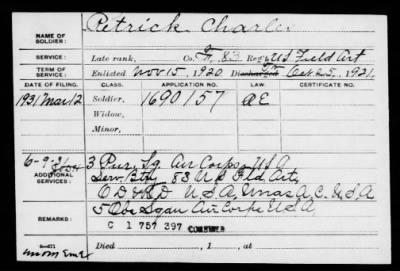 NAME OF SOLDIER: Petrick Charles
SERVICE: Late rank, Co. F, 83 Reg't US Field Art
TERM OF SERVICE: Enlisted Nov 15, 1920, Discharged To Oct 25, 1921,
DATE OF FILING. CLASS. APPLICATION NO. LAW. CERTIFICATE NO.
1931 Mar 12 Soldier, 1690157 AE
Widow,
Minor,
6-9-8/34 3 Pur, Sq Air Corps, USA
ADDITIONAL SERVICES: Serv. Bty 83 US Fld Art,
U.S.A, A.C. U.S.A
5 Obs Sqdn Air Corps U.S.A,
C 1 757 397 COMBINED
Died , 1 , at